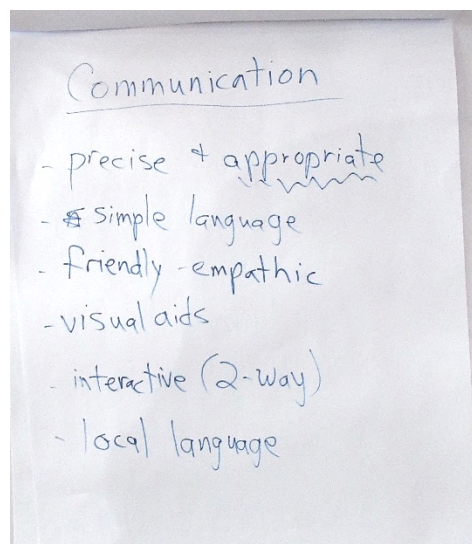 Communication
- precise & appropriate
- simple language
- friendly - empathic
- visual aids
- interactive (2-way)
- local language